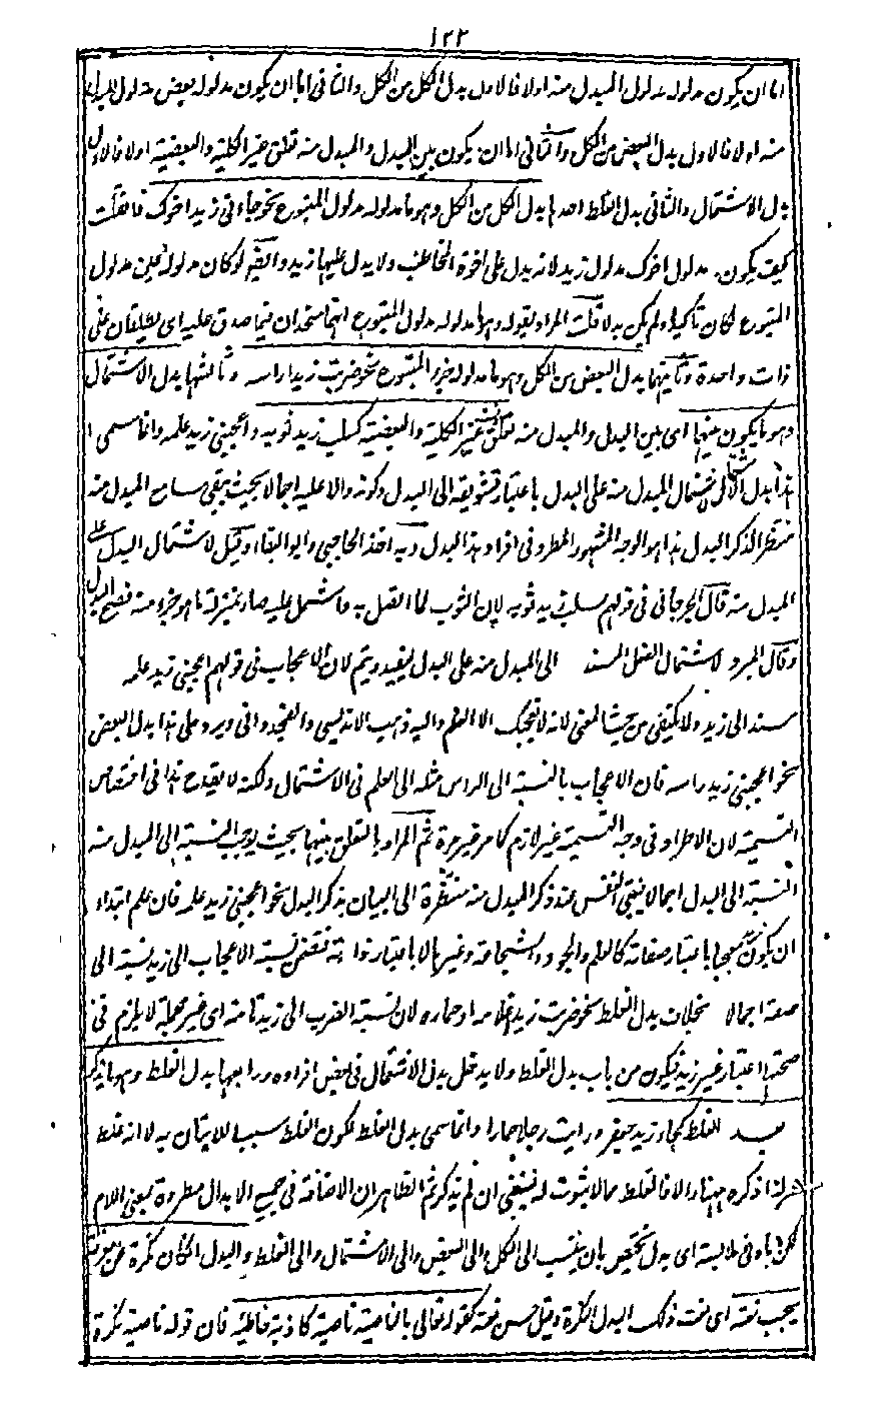 ١٢٢
اما ان يكون مدلوله مدلول المبدل منه اولا فالاول بدل الكل من الكل والثانى اما ان يكون مدلوله بعض مدلول المبدل
منه اولا فالاول بدل البعض من الكل والثانى اما ان يكون بين البدل والمبدل منه تعلق بغير الكلية والبعضية اولا فالاول
بدل الاشتمال والثانى بدل الغلط احدها بدل الكل من الكل وهو ما مدلوله مدلول المتبوع نحو جاءنى زيد اخوك فان قلت
كيف يكون مدلول اخوك مدلول زيد لانه يدل على اخوة المخاطب ولا يدل عليها زيد وايضا لو كان مدلوله عين مدلول
المتبوع لكان تأكيدا ولم يكن بدلا قلت المراد بقوله وهو ما مدلوله مدلول المتبوع انهما متحدان فيما صدق عليه اى يطلقان على
ذات واحدة وثانيها بدل البعض من الكل وهو ما مدلوله جزء المتبوع نحو ضربت زيدا راسه وثالثها بدل الاشتمال
وهو ما يكون بينهما اى بين البدل والمبدل منه تعلق بغير الكلية والبعضية كسلب زيد ثوبه واعجبنى زيد علمه وانما سمى
هذا بدل الاشتمال لاشتمال المبدل منه على البدل باعتبار تشويقه الى البدل وكونه دالا عليه اجمالا بحيث يبقى سامع المبدل منه
منتظرا لذكر البدل هذا هو الوجه المشهور المطرد فى افراد هذا البدل وبه اخذ الحاجبى وابو البقاء وقيل لاشتمال البدل على
المبدل منه قال الجرجانى فى قولهم سلب زيد ثوبه لان الثوب لما اتصل به واشتمل عليه صار بمنزلة ما هو جزء منه فصح البدل
وقال المبرد لاشتمال الفعل المسند الى المبدل منه على البدل ليفيد ويتم لان الاعجاب فى قولهم اعجبنى زيد علمه
مسند الى زيد ولا يكتفى من حيث المعنى لانه لا يعجبك الا العلم واليه ذهب الاندلسى والفجدوانى ويرد على هذا بدل البعض
نحو اعجبنى زيد راسه فان الاعجاب بالنسبة الى الراس مثله الى العلم فى الاشتمال ولكنه لا يقدح هذا فى اختصاص
التسمية لان الاطراد فى وجه التسمية غير لازم كما مر غير مرة ثم المراد بالتعلق بينهما بحيث يوجب النسبة الى المبدل منه
النسبة الى البدل اجمالا يبقى النفس عند ذكر المبدل منه منتظرة الى البيان بذكر البدل نحو اعجبنى زيد علمه فان علم ابتداء
ان يكون معجبا باعتبار صفاته كالعلم والجود والشجاعة وغيرها لا باعتبار ذاته فتضمن نسبة الاعجاب الى زيد نسبة الى
صفة اجمالا بخلاف بدل الغلط نحو ضربت زيدا غلامه او حماره لان نسبة الضرب الى زيد تامة اى غير مجملة لا يلزم فى
صحتها اعتبار غير زيد فيكون من باب بدل الغلط ولا يدخل بدل الاشتمال فى بعض افراده ورابعها بدل الغلط وهو ما يذكر
بعد الغلط كجاء زيد جعفر ورايت رجلا حمارا وانما سمى بدل الغلط لكون الغلط سببا للاتيان به لا انه غلط
هو لذا ذكره ههنا والا فالغلط مما لا ثبوت له فينبغى ان لم يذكر ثم الظاهر ان الاضافة فى جميع الابدال مطردة بمعنى اللام
لكن بادنى ملابسة اى بدل يختص بان ينسب الى الكل والى البعض والى الاشتمال والى الغلط والبدل ان كان نكرة عن معرفة
يجب نعته اى نعت ذلك البدل النكرة وقيل حسن نعته كقوله تعالى بالناصية ناصية كاذبة خاطئة فان قوله ناصية نكرة